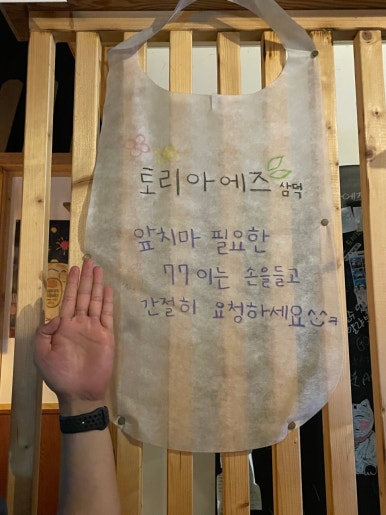 토리아에즈 삼덕
앞치마 필요한
77이는 손을들고
간절히 요청하세요^^ㅋ